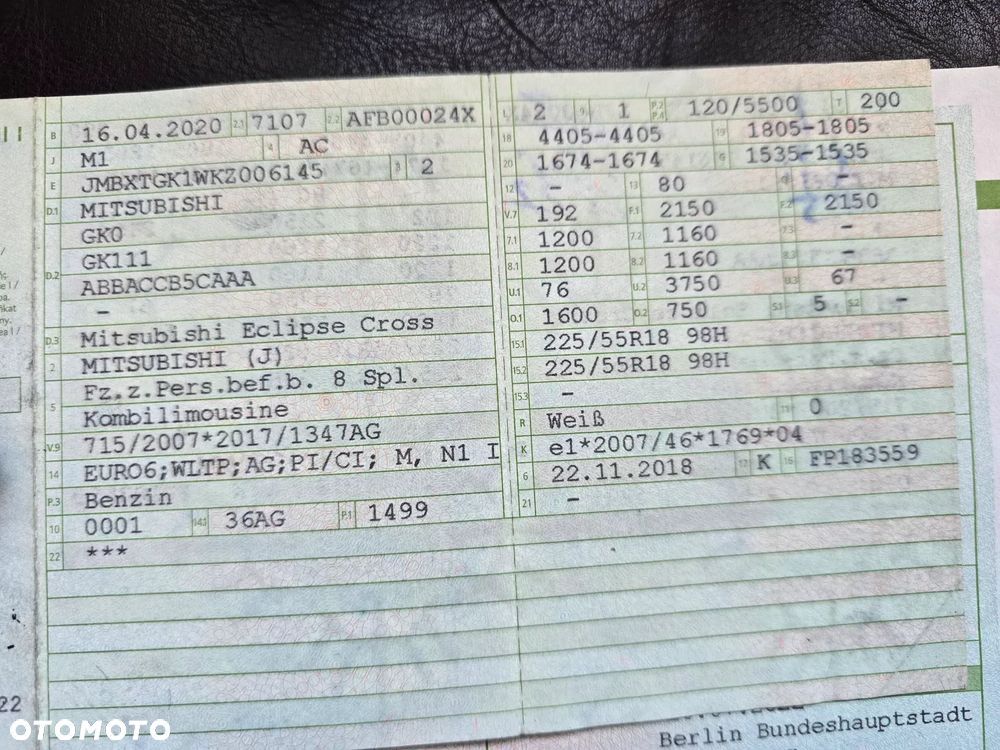 B 16.04.2020 2.1 7107 2.2 AFB00024X
J M1 4 AC
E JMBXTGK1WKZ006145 3 2
D.1 MITSUBISHI
GK0
D.2 GK111
ABBACCB5CAAA
–
D.3 Mitsubishi Eclipse Cross
2 MITSUBISHI (J)
5 Fz.z.Pers.bef.b. 8 Spl.
Kombilimousine
V.9 715/2007*2017/1347AG
14 EURO6;WLTP;AG;PI/CI; M, N1 I
P.3 Benzin
10 0001 14.1 36AG P.1 1499
22 ***
L 2 9 1 P.2 P.4 120/5500 T 200
18 4405-4405 19 1805-1805
20 1674-1674 G 1535-1535
12 – 13 80 Q –
V.7 192 F.1 2150 F.2 2150
7.1 1200 7.2 1160 7.3 –
8.1 1200 8.2 1160 8.3 –
U.1 76 U.2 3750 U.3 67
O.1 1600 O.2 750 S.1 5 S.2 –
15.1 225/55R18 98H
15.2 225/55R18 98H
15.3 –
R Weiß 11 0
K e1*2007/46*1769*04
6 22.11.2018 17 K 16 FP183559
21 –
22
Berlin Bundeshauptstadt
OTOMOTO